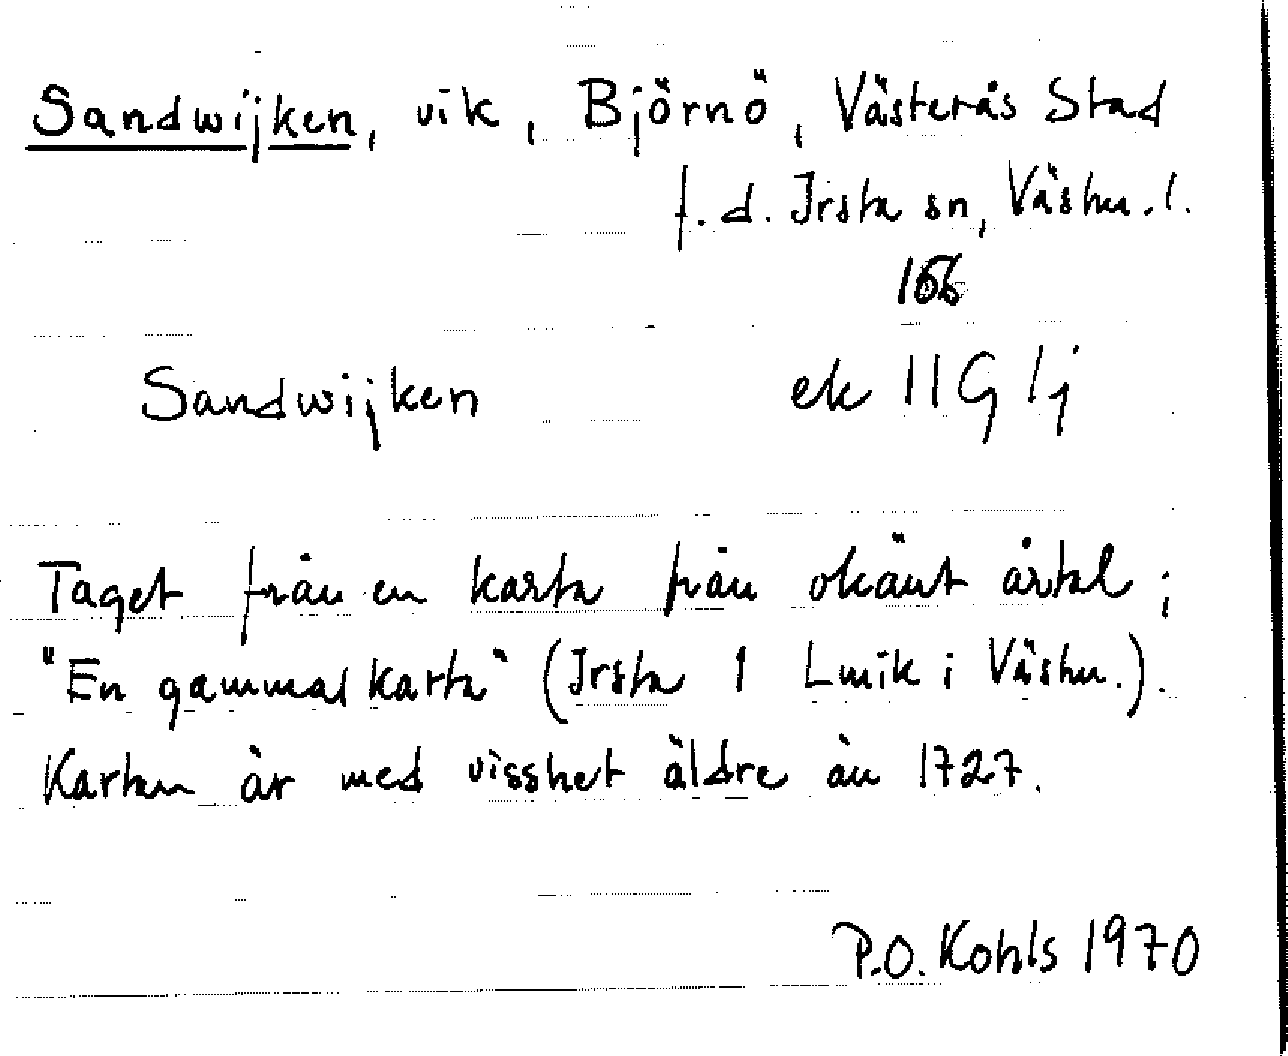 Sandwijken, vik, Björnö, Västerås Stad
f.d. Irsta sn, Västm. l.
Sandwijken ek 11G 1j
Taget från en karta från okänt årtal;
"En gammal karta" (Irsta 1 Lmik i Västm.).
Kartan är med visshet äldre än 1727.
P.O. Kohls 1970